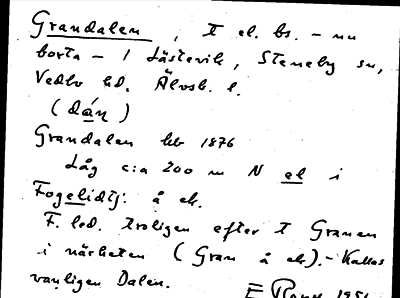 Grandalen, T el. bs. - nu
borta - i Låstevik, Steneby sn,
Vedbo hd. Älvsb. l.
(dáɳ)
Grandalen hb 1876
Låg c:a 200 m N el i
Fogelidtj: å ek.
F. led. troligen efter T Granen
i närheten (Gran å ek). - Kallas
vanligen Dalen. E 1951